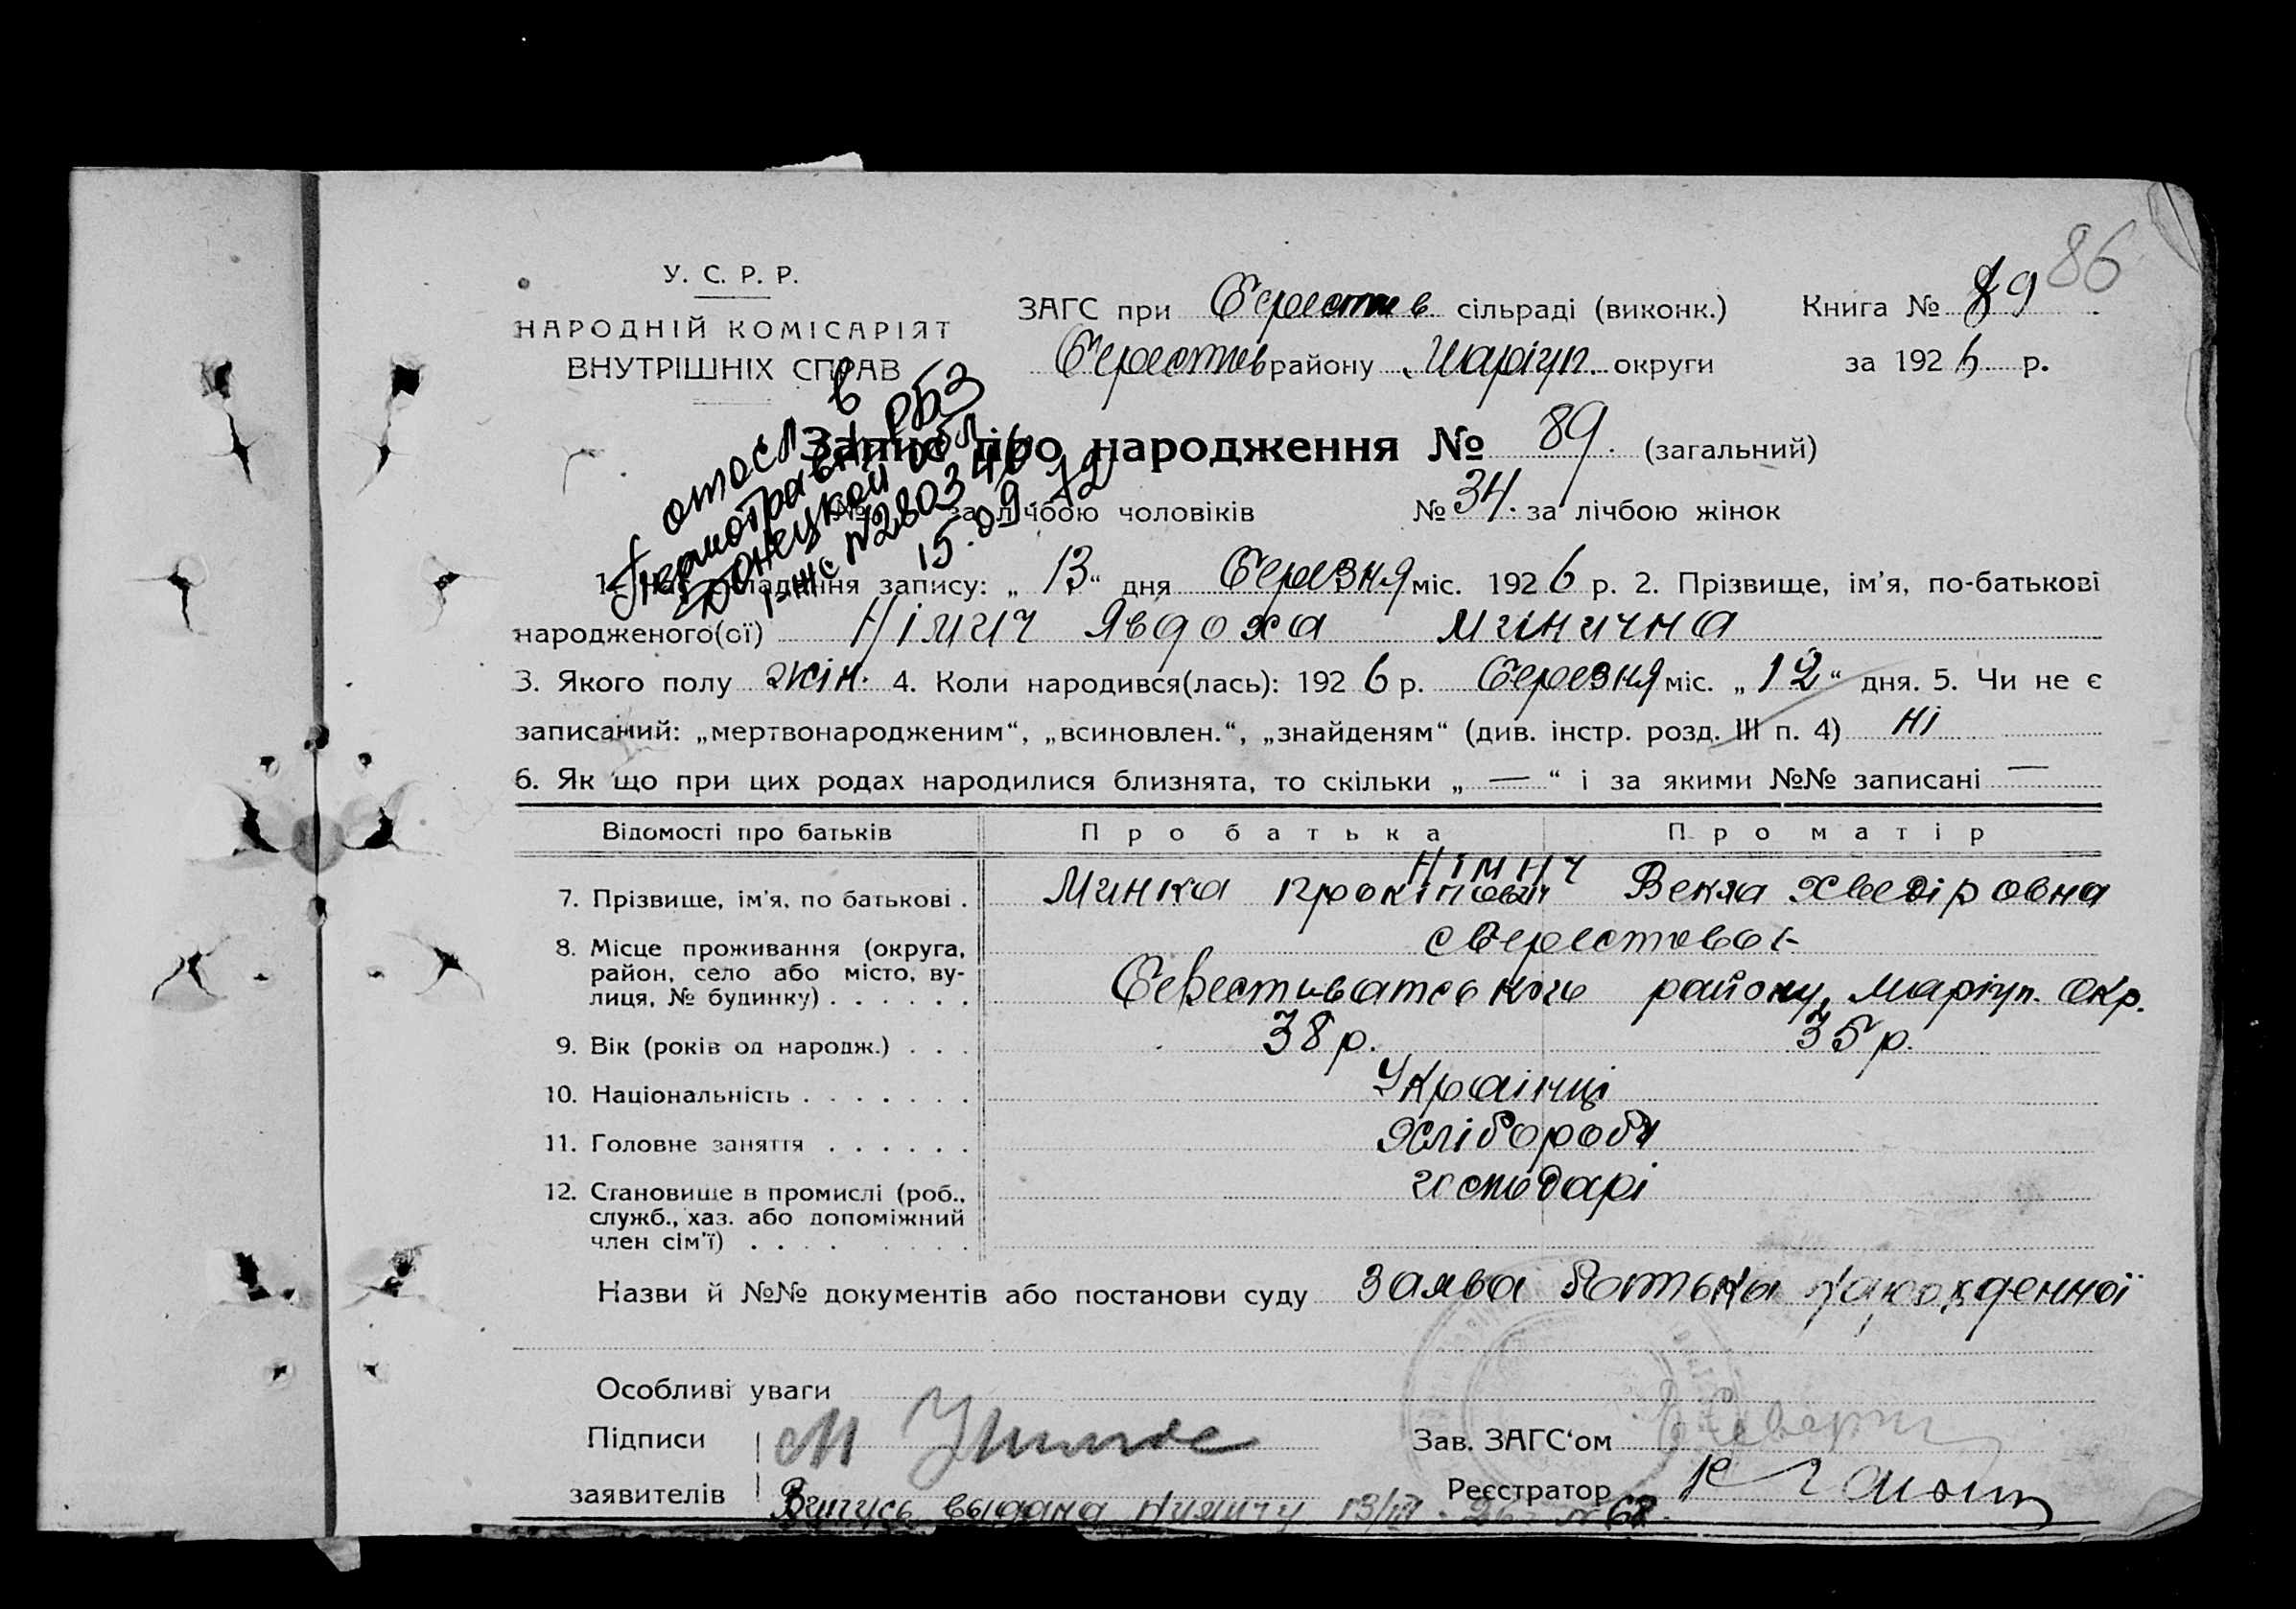 86
У. С. Р. Р.
НАРОДНІЙ КОМІСАРІЯТ
ВНУТРІШНІХ СПРАВ
ЗАГС при Берестов сільраді (виконк.) Книга № 89
Берестов району Маріуп. округи за 1926 р.
Запис про народження № 89. (загальний)
за лічбою чоловіків № 34. за лічбою жінок
в
отосл
Донецкой обл
№ 280346
15.09 72
запису: „13“ дня Березня міс. 1926 р. 2. Прізвище, ім’я, по-батькові
народженого(ої) Німич Явдоха Минична
3. Якого полу жін. 4. Коли народився(лась): 1926 р. Березня міс. „12“ дня. 5. Чи не є
записаний: „мертвонародженим“, „всиновлен.“, „знайденям“ (див. інстр. розд. III п. 4) ні
6. Як що при цих родах народилися близнята, то скільки „ — “ і за якими №№ записані —
Відомості про батьків Про батька Про матір
Німич
7. Прізвище, ім’я, по батькові . Минка Прокіпович Векла Хведіровна
8. Місце проживання (округа, район, село або місто, вулиця, № будинку) . . . . . .
с Берестовог
району, Маріуп. Окр.
9. Вік (років од народж.) . . . 38 р. 35 р.
10. Національність . . . . . . . Українці
11. Головне заняття . . . . . . Хлібороби
12. Становище в промислі (роб., господарі
служб., хаз. або допоміжний
член сім’ї) . . . . . . . .
Назви й №№ документів або постанови суду Заява батька народженної
Особливі уваги
Підписи М
Зав. ЗАГС‘ом
заявителів
Реєстратор
Випись выдана Нимичу 13/III - 26 г № 68.